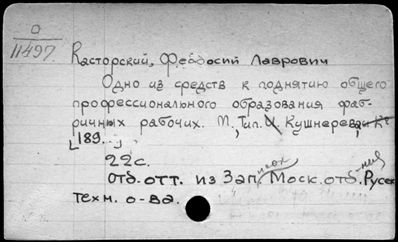 О
11497.
Касторский, Феодосий Лаврович
Одно из средств к поднятию общего
профессионального образования фаб-
ричных рабочих. М., Тип. И. Кушнерева и Кº
[189...]
22с.
Отд. отт. из Записок Моск. отд-ния Русск
техн. о-ва.